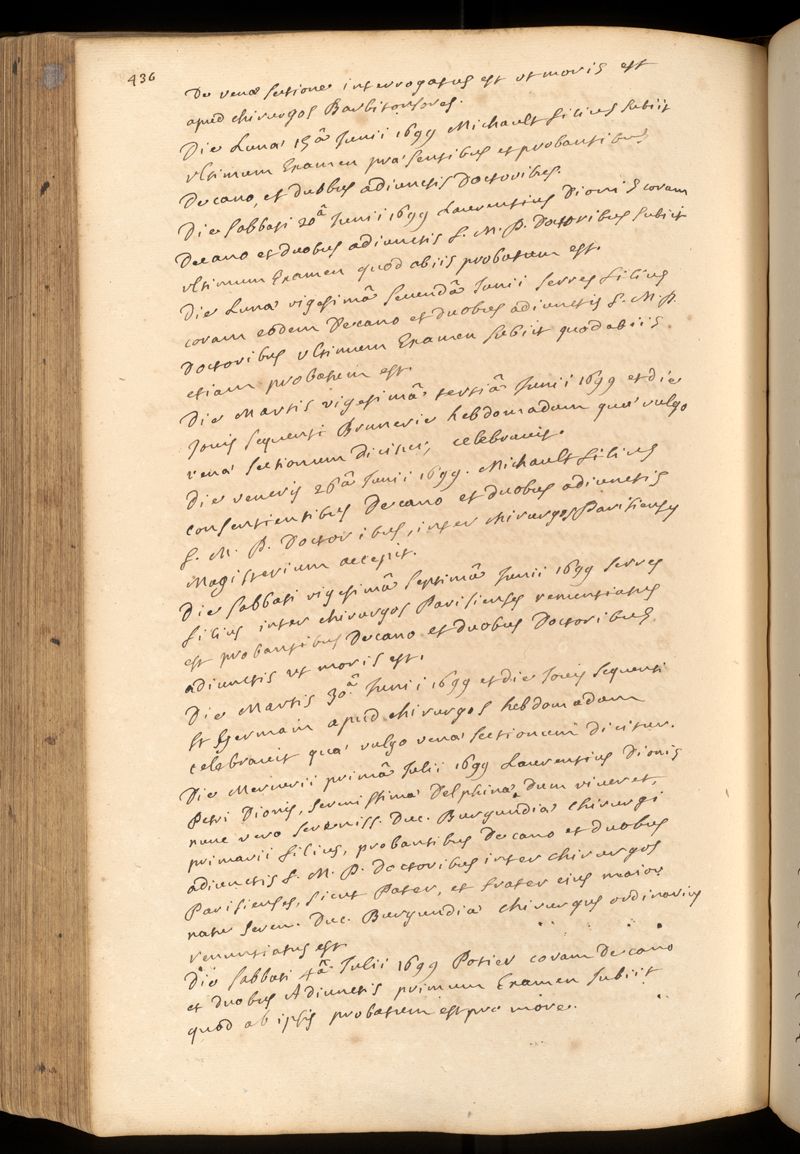 436
De venæ sectione interrogatus est ut moris est
apud chirurgos Barbitonsores.
Die Lunæ 15â Junii 1699 Michault filius subiit
ultimum Examen præsentibus et probantibus
Decano, et duobus adiunctis Doctoribus.
Die Sabbati 20â Junii 1699 Laurentius Dionis coram
Decano et duobus adiunctis f. M. P. Doctoribus subiit
ultimum Examen quod ab iis probatum est.
Die Lunæ vigesimâ secundâ Junii Serres filius
coram eodem Decano et duobus adiunctis f. M. P.
Doctoribus ultimum Examen subiit quod ab iis
etiam probatum est.
Die Martis vigesimâ tertiâ Junii 1699 et die
Jovis sequenti Brunerie hebdomadam quæ vulgo
venæ sectionum dicitur, celebravit.
Die veneris 26â Junii 1699. Michault filius
consentientibus Decano et duobus adiunctis
f. M. P. Doctoribus, inter chirurgos Parisienses
Magisterium accepit.
Die Sabbati vigesimâ septimâ Junii 1699 Serres
filius inter chirurgos Parisienses renuntiatus
est probantibus Decano et duobus Doctoribus
adiunctis ut moris est.
Die Martis 30â Junii 1699 et die Jovis sequenti
St Germain apud chirurgos hebdomadam
celebravit quæ vulgo venæ sectionum dicitur.
Die Mercurii primâ Julii 1699 Laurentius Dionis
Petri Dionis, serenissimæ Delphinæ dum viveret,
nunc vero sereniss. Duc. Burgundiæ chirurgi
primarii filius, probantibus Decano et duobus
adiunctis f. M. P. Doctoribus inter chirurgos
Parisienses, sicut Pater, et frater eius maior
natu seren. Duc. Burgundiæ chirurgus ordinarius
renuntiatus est.
Die Sabbati 4â Julii 1699 Potier coram Decano
et duobus Adiunctis primum Examen subiit
quod ab ipsis probatum est pro more.